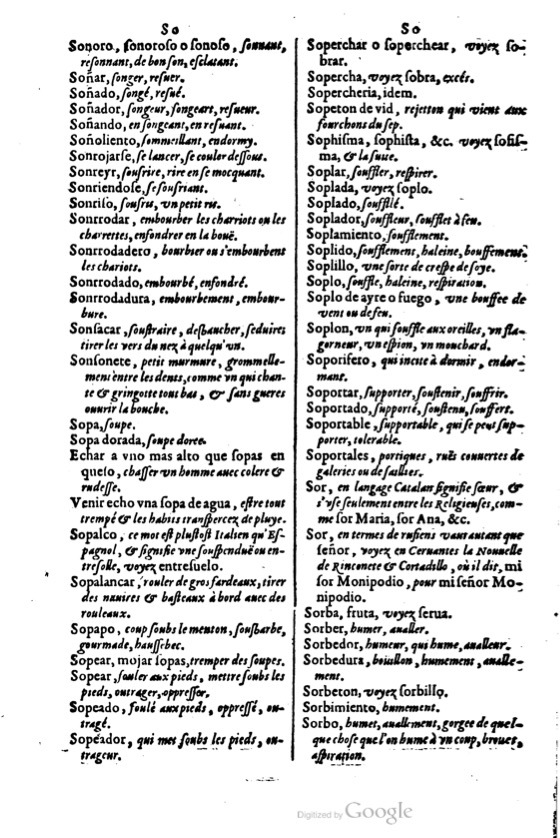 So
Sonoro, ſonoroſo o ſonoſo, ſonnant,
reſonnant, de bon ſon, eſclatant.
Soñar, ſonger, reſuer.
Soñado, ſongé, reſué.
Soñador, ſongeur, ſongeart, reſueur.
Soñando, en ſongeant, en reſuant.
Soñoliento, ſommeillant, endormy.
Sonrojarſe, ſe lancer, ſe couler deſſous.
Sonreyr, ſouſrire, rire en ſe mocquant.
Sonriendoſe, ſe ſouſriant.
Sonriſo, ſouſris, vn petit ris.
Sonrrodar, embourber les charriots ou les
charrettes, enfondrer en la bouë.
Sonrrodadero, bourbier ou s'embourbent
les chariots.
Sonrrodado, embourbé, enfondré.
Sonrrodadura, embourbement, embour-
bure.
Sonſacar, ſouſtraire, desbaucher, ſeduire,
tirer les vers du nez à quelqu'vn.
Sonſonete, petit murmure, grommelle-
ment entre les dents, comme vn qui chan-
te & gringotte tout bas, & ſans gueres
ouurir la bouche.
Sopa, ſoupe.
Sopa dorada, ſoupe doree.
Echar a vno mas alto que ſopas en
queſo, chaſſer vn homme auec colere &
rudeſſe.
Venir echo vna ſopa de agua, eſtre tout
trempé & les habits tranſpercez de pluye.
Sopalco, ce mot eſt pluſtoſt Italien qu'Eſ-
pagnol, & ſignifie vne ſouſpenduë ou en-
treſolle, voyez entreſuelo.
Sopalancar, rouler de gros fardeaux, tirer
des nauires & baſteaux à bord auec des
rouleaux.
Sopapo, coup ſoubs le menton, ſouſbarbe,
gourmade, hauſſebec.
Sopear, mojar ſopas, tremper des ſoupes.
Sopear, fouler aux pieds, mettre ſoubs les
pieds, outrager, oppreſſer.
Sopeado, foulé aux pieds, oppreſſé, ou-
tragé.
Sopéador, qui met ſoubs les pieds, ou-
trageur.
So
Soperchar o ſoperchear, voyez ſo-
brar.
Sopercha, voyez ſobra, excés.
Sopercheria, idem.
Sopeton de vid, rejetton qui vient aux
fourchons du ſep.
Sophiſma, ſophiſta, &c. voyez ſofiſ-
ma, & la ſuue.
Soplar, ſouffler, reſpirer.
Soplada, voyez ſoplo.
Soplado, ſoufflé.
Soplador, ſouffleur, ſoufflet à feu.
Soplamiento, ſoufflement.
Soplido, ſoufflement, haleine, bouffement.
Soplillo, vne ſorte de creſpe de ſoye.
Soplo, ſouffle, haleine, reſpiration.
Soplo de ayre o fuego, vne bouffee de
vent ou de feu.
Soplon, vn qui ſouffle aux oreilles, vn fla-
gorneur, vn eſpion, vn mouchard.
Soporifero, qui incite à dormir, endor-
mant.
Soportar, ſupporter, ſouſtenir, ſouffrir.
Soportado, ſupporté, ſouſtenu, ſouffert.
Soportable, ſupportable, qui ſe peut ſup-
porter, tolerable.
Soportales, portiques, ruës couuertes de
galeries ou de ſaillies.
Sor, en langage Catalan ſignifie ſœur, &
s'vſe ſeulement entre les Religieuſes, com-
me ſor Maria, ſor Ana, &c.
Sor, en termes de rufiens vaut autant que
ſeñor, voyez en Ceruantes la Nouuelle
de Rinconete & Cortadillo, où il dit, mi
ſor Monipodio, pour mi ſeñor Mo-
nipodio.
Sorba, fruta, voyez ſerua.
Sorber, humer, aualler.
Sorbedor, humeur, qui hume, aualleur.
Sorbedura, boüillon, humement, aualle-
ment.
Sorbeton, voyez ſorbillo.
Sorbimiento, humement.
Sorbo, humet, auallement, gorgee de quel-
que choſe que l'on hume à vn coup, brouet,
aſpiration.
Digitized by Google